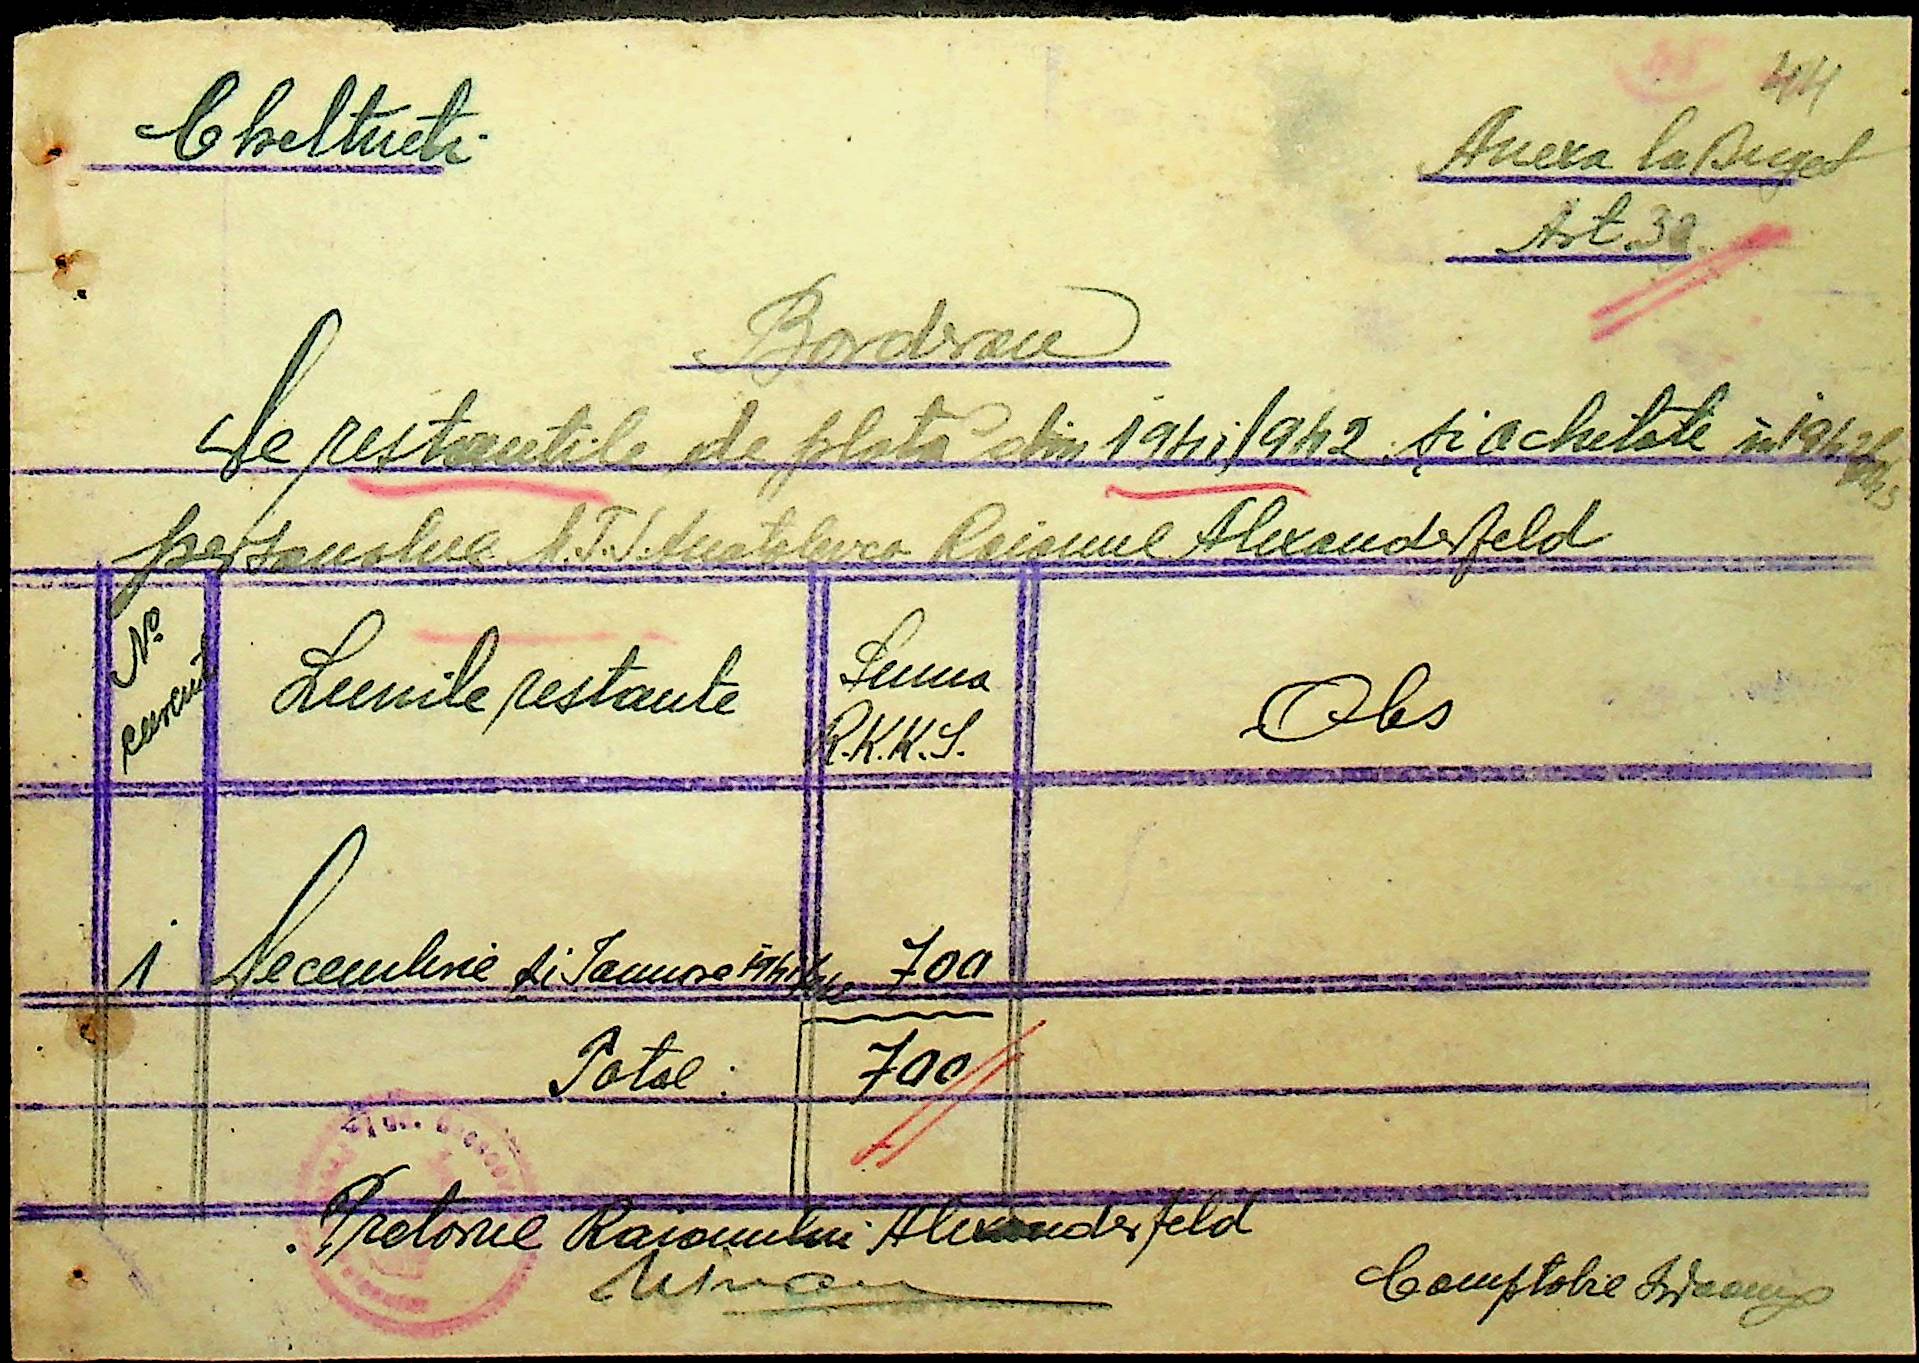 44
Cheltueli
Anexa la Buget
Art. 32
Bordrou
De restantele de plata din 1941/942 și achitate in 1942/943
personalul S.T.S. Anatolevca Raionul Alexanderfeld
No curent
Lunile restante
Suma R.K.K.S.
Obs
1 Decembrie și Ianuarie 1941/942 700
Total: 700
Pretorul Raionului Alexanderfeld
Comptabil